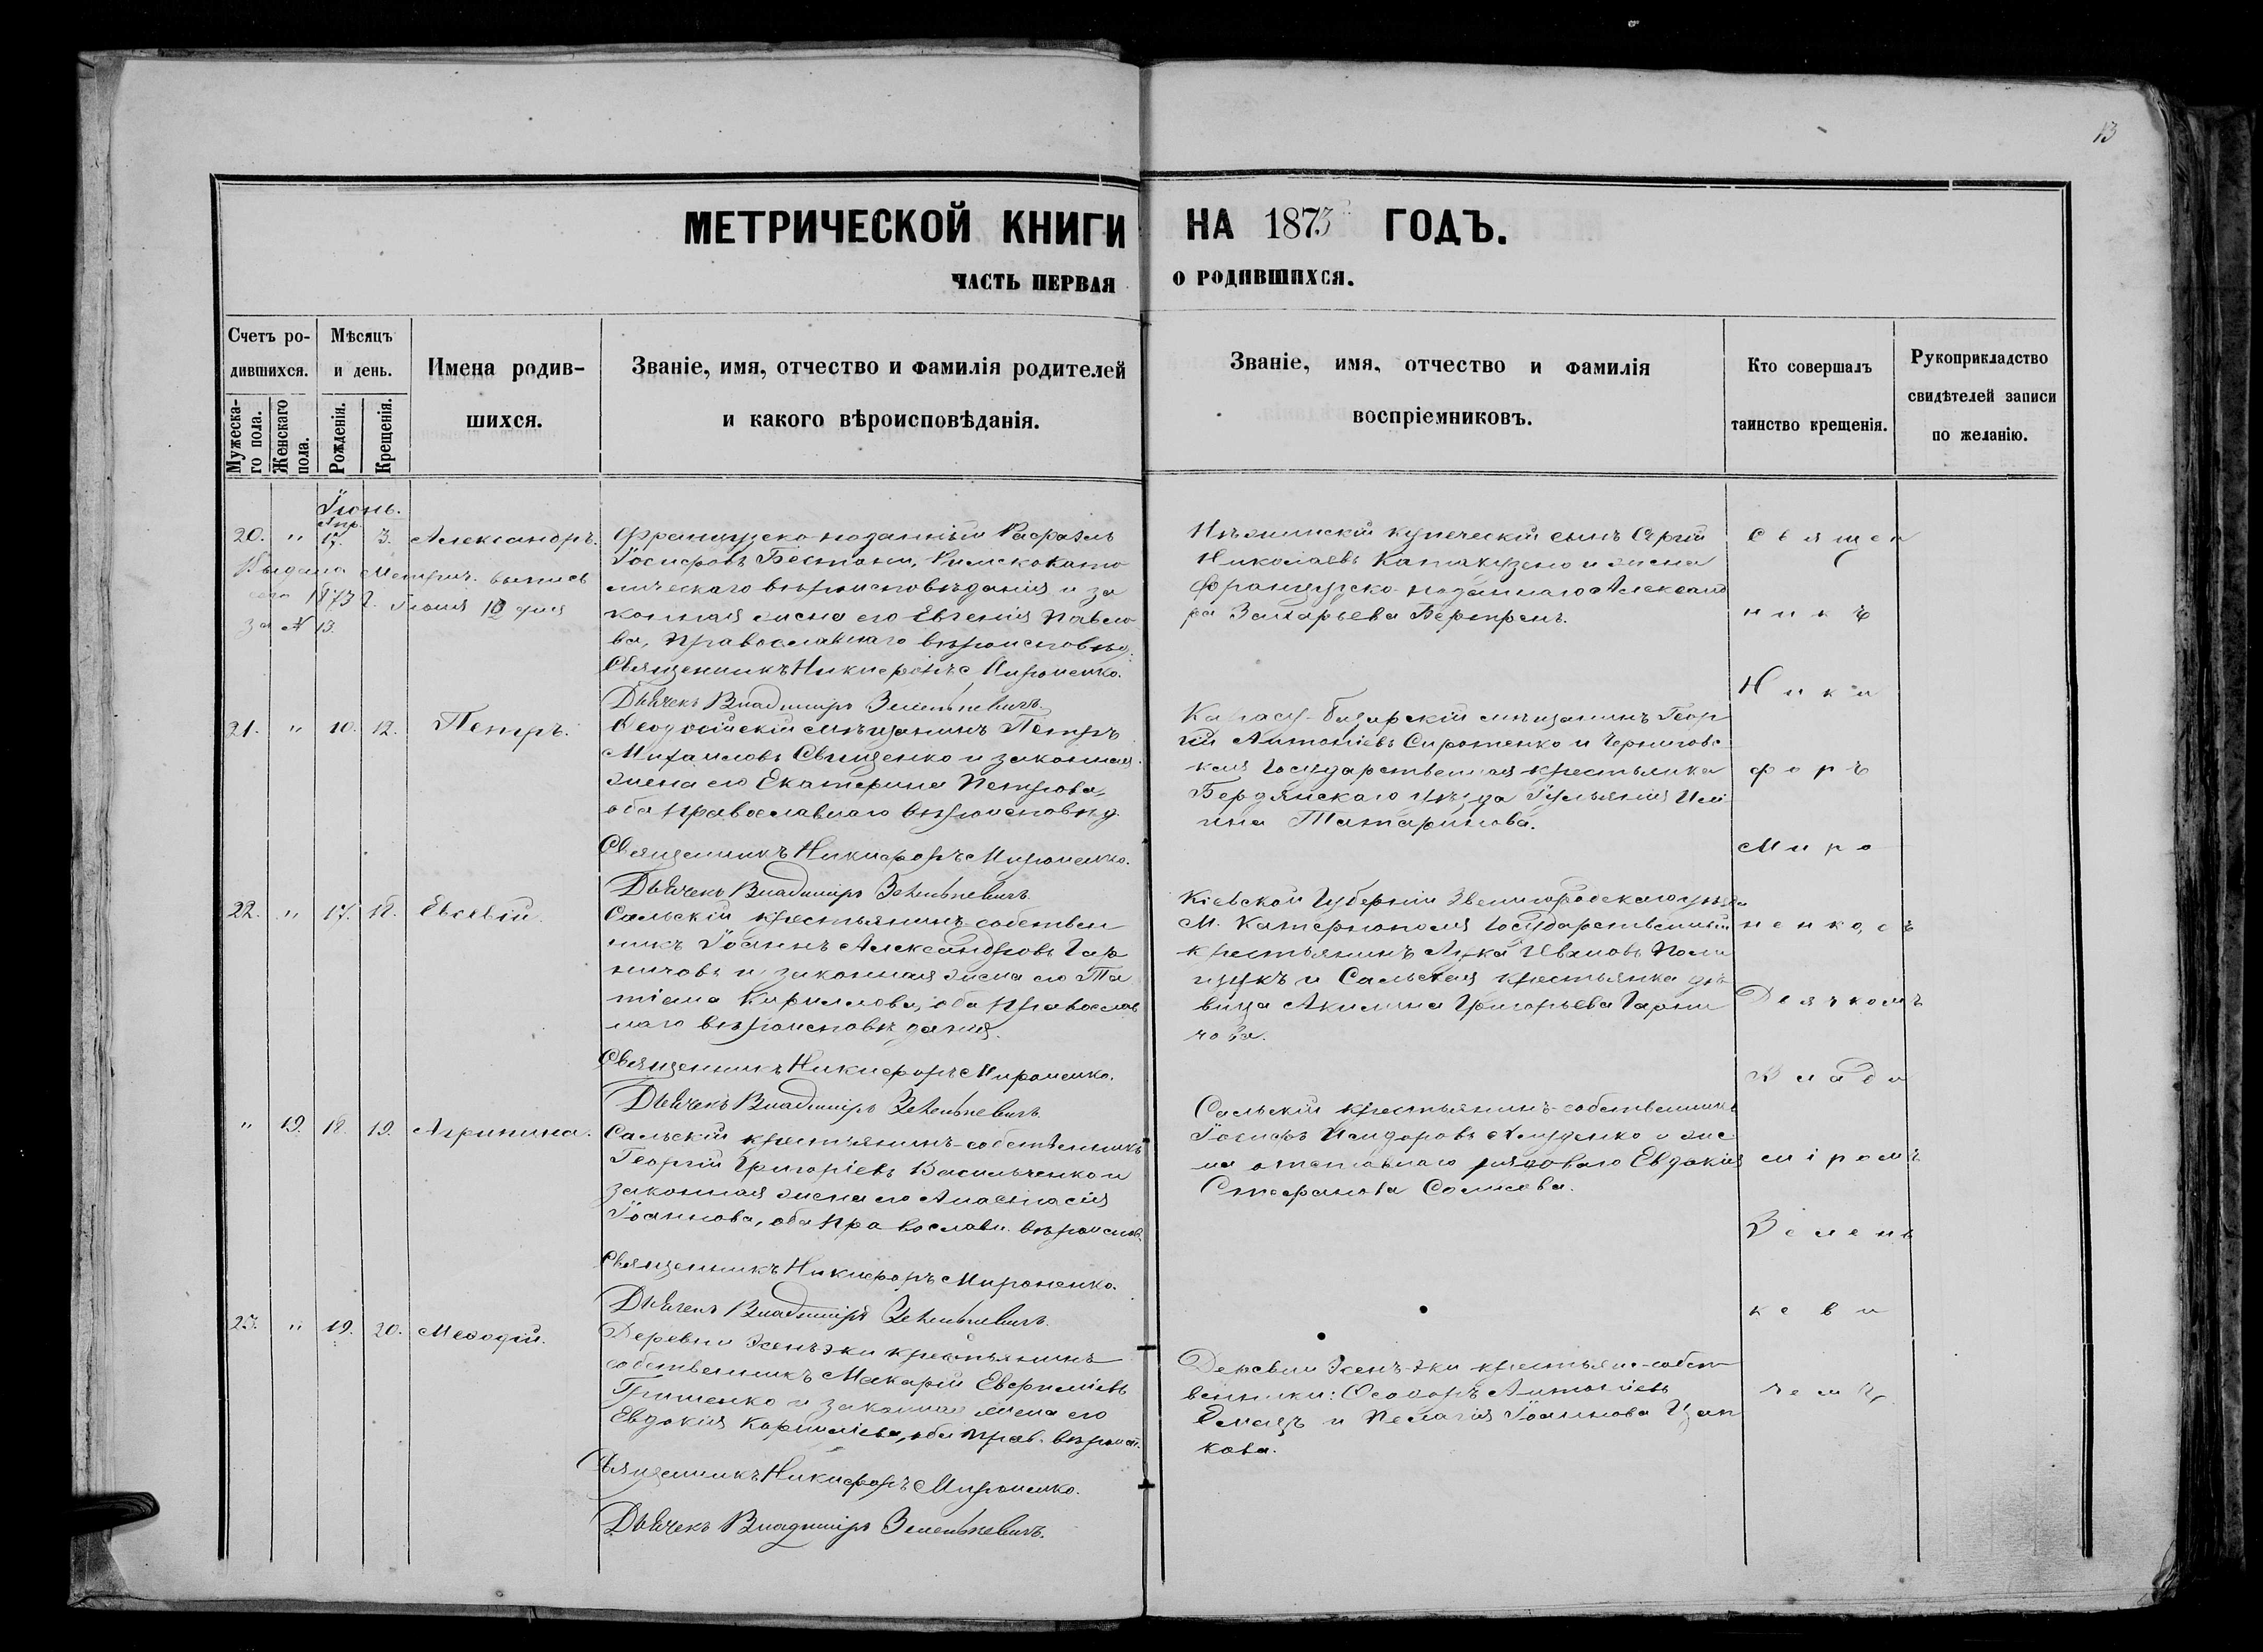 13
МЕТРИЧЕСКОЙ КНИГИ НА 1873 ГОДЪ.
ЧАСТЬ ПЕРВАЯ О РОДИВШИХСЯ.
Счетъ ро-
дившихся.
Мужеска-
го пола.
Женскаго
пола.
Мѣсяцъ
и день.
Рожденія.
Крещенія.
Имена родив-
шихся.
Званіе, имя, отчество и фамилія родителей
и какого вѣроисповѣданія.
Званіе, имя, отчество и фамилія
воспріемниковъ.
Кто совершалъ
таинство крещенія.
Рукоприкладство
свидѣтелей записи
по желанію.
Іюнь.
Апр.
20. " 17. 3. Александръ.
Выдана Метрич. выпись
1873 г. Іюня 12 дня
за № 13.
Французско-подданный Рафаэль
Іосифовъ Римскокато
лическаго вѣроисповѣданія и за
конная жена его Евгенія Павло
ва, Православнаго вѣроисповѣд.
Священникъ Никифоръ Мироненко.
Дьячекъ Владиміръ Зеленкевичъ.
Нѣжинскій купеческій сынъ Сергій
Николаевъ Катакузено и жена
Французско-подданнаго Александ
ра Захарьева Бертренъ.
21. " 10. 12. Петръ.
Феодосійскій мѣщанинъ Петръ
Михаиловъ Свищенко и законная
жена его Екатерина Петрова,
оба Православнаго вѣроисповѣд.
Священникъ Никифоръ Мироненко.
Дьячекъ Владиміръ Зеленкевичъ.
Карасу-базарскій мѣщанинъ Геор
гій Антоніевъ Сиротенко и Черниговс
кая Государственная крестьянка
Бердянскаго уѣзда Іуліянія Иль
ина Татаринова.
22. " 17. 18. Евсевій.
Сальскій крестьянинъ-собствен
никъ Іоаннъ Александровъ Гар
ничовъ и законная жена его Та
тіана Кириллова, оба Православ
наго вѣроисповѣданія.
Священникъ Никифоръ Мироненко.
Дьячекъ Владиміръ Зеленкевичъ.
Кіевской Губерніи Звенигородскаго уѣзда
М. Катеринополя Государственный
крестьянинъ Лука Ивановъ Поли
щукъ и Сальская крестьянка дѣ
вица Акилина Григорьева Гарни
чова.
" 19. 18. 19. Агрипина.
Сальскій крестьянинъ-собственникъ
Георгій Григоріевъ Васильченко и
законная жена его Анастасія
Іоаннова, оба православн. вѣроиспов.
Священникъ Никифоръ Мироненко.
Дьячекъ Владиміръ Зеленкевичъ.
Сальскій крестьянинъ-собственникъ
Іосифъ Исидоровъ и же
на отставнаго рядоваго Евдокія
Стефанова
23. " 19. 20. Мефодій.
Деревни Эсенъ-эки крестьянинъ
собственникъ Макарій Евфиміевъ
Гриценко и законная жена его
Евдокія Корниліева, оба прав. вѣроисп.
Священникъ Никифоръ Мироненко.
Дьячекъ Владиміръ Зеленкевичъ.
Деревни Эсенъ-эки крестьяне-собст
венники: Феодоръ Антоніевъ
и Пелагія Іоаннова Цап
кова.
Священ
никъ
Ники
форъ
Миро
ненко, съ
Дьячкомъ
Влади
міромъ
Зелен
кеви
чемъ